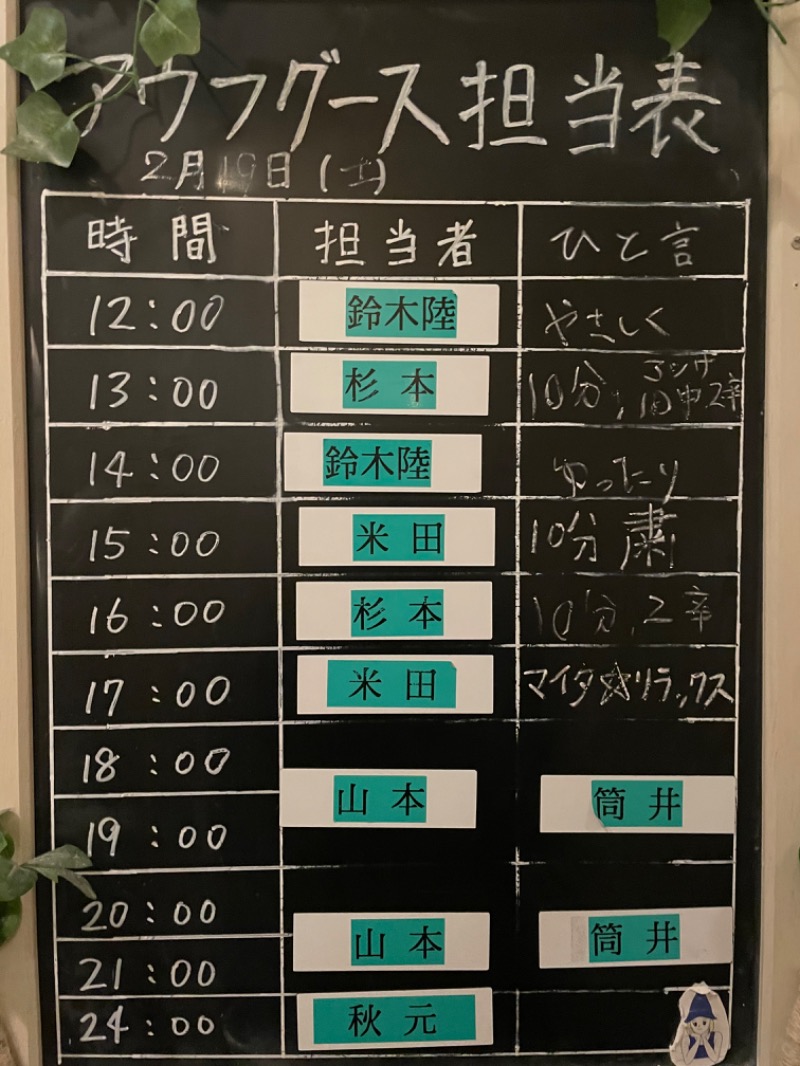 アウフグース担当表
2月19日(土)
時間 担当者 ひと言
12:00 鈴木陸 やさしく
13:00 杉本 10分,
14:00 鈴木陸 ゆったり
15:00 米田 10分 粛
16:00 杉本 10分,
17:00 米田 マイタ☆リラックス
18:00
山本 筒井
19:00
20:00
山本 筒井
21:00
24:00 秋元